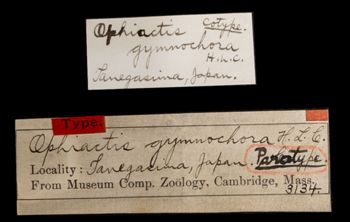 Ophiactis Cotype.
gymnochora
H.L.C.
Tanegasima, Japan.
Type.
Ophiactis gymnochora H.L.C.
Locality: Tanegasima, Japan. Paratype.
From Museum Comp. Zoölogy, Cambridge, Mass.
3134